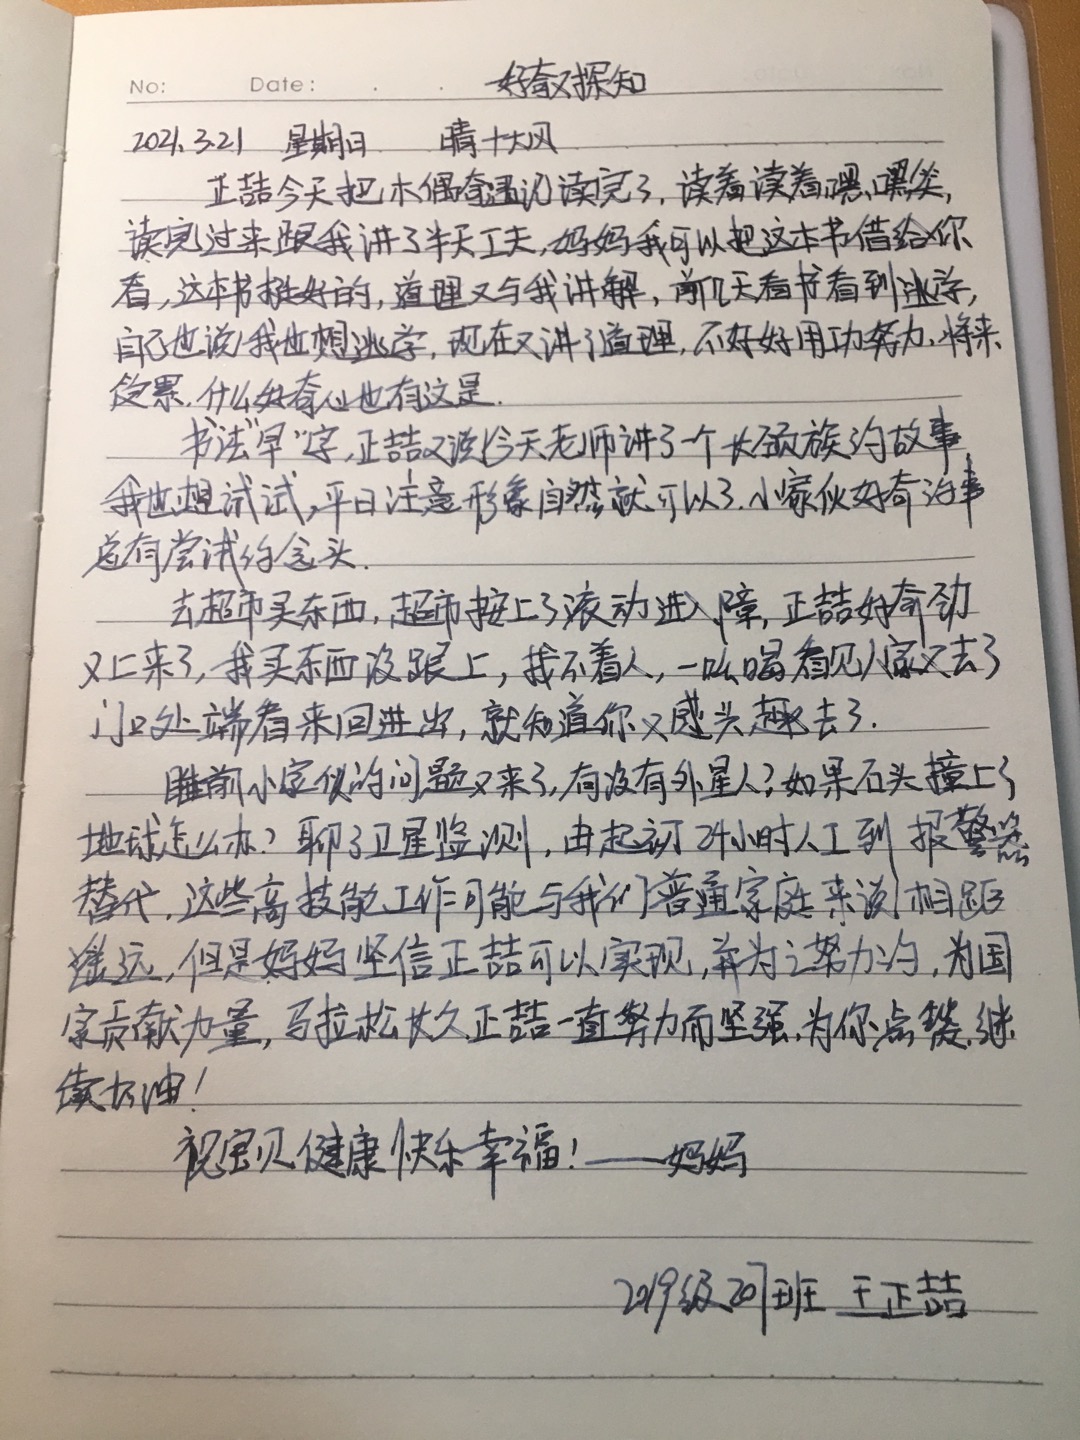 No: Date: . . 好奇又探知
2021.3.21 星期日 晴+大风
正喆今天把木偶奇遇记读完了，读着读着嘿嘿笑，
读完过来跟我讲了半天工夫，妈妈我可以把这本书借给你
看，这本书挺好的，道理又与我讲解，前几天看书看到逃学，
自己也说我也想逃学，现在又讲了道理，不好好用功努力，将来
后果，什么好奇心也有这是。
书法"早"字，正喆又说今天老师讲了一个长颈族的故事，
我也想试试，平日注意形象自然就可以了，小家伙好奇的事
总有尝试的念头。
去超市买东西，超市按上了滚动进入障，正喆好奇劲
又上来了，我买东西没跟上，找不着人，一吆喝看见人家又去了
门口处端看来回进出，就知道你又感头趣去了.
睡前小家伙的问题又来了，有没有外星人？如果石头撞上了
地球怎么办？聊了卫星监测，由起初24小时人工到报警器
替代，这些高技能工作可能与我们普通家庭来说相距
遥远，但是妈妈坚信正喆可以实现，并为之努力的，为国
家贡献力量，马拉松长久正喆一直努力而坚强，为你点赞，继
续加油！
祝宝贝健康快乐幸福！——妈妈
2019级20班 王正喆